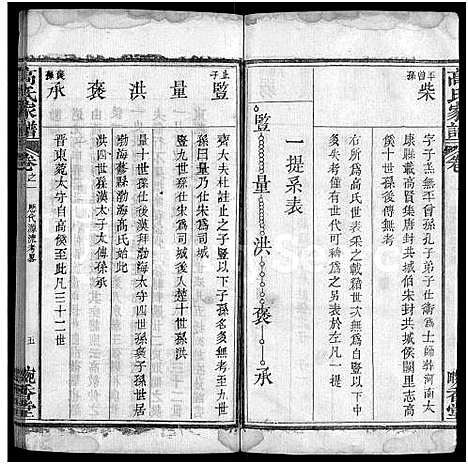 高氏家譜
卷
晚香堂
平曾孫
柴
字子羔無平曾孫孔子弟子仕衞爲士師葬河南太
康縣戴高賢集唐封共城伯宋封共城侯闕里志高
侯十世孫以後俱無考
右所爲高氏世表采之載籍世次無自竪以下中
多失考僅有世代可稱爲之另表於左凡一提
一提系表
竪
量
洪
褒
承
止子
竪
量
洪
褒
褒孫
承
齊大夫杜註止之子竪以下子孫名多無考至九世
孫曰量乃仕宋爲司城
竪九世孫仕宋爲司城後入楚十世孫洪
量十世孫仕後漢拜渤海太守四世孫褒子孫世居
渤海蓨縣渤海高氏始此
洪四世孫漢太子太傅孫承
晉東莞太守自高侯至此凡三十二世
高氏家譜
卷之一
歷代源流考畧
五
晚香堂